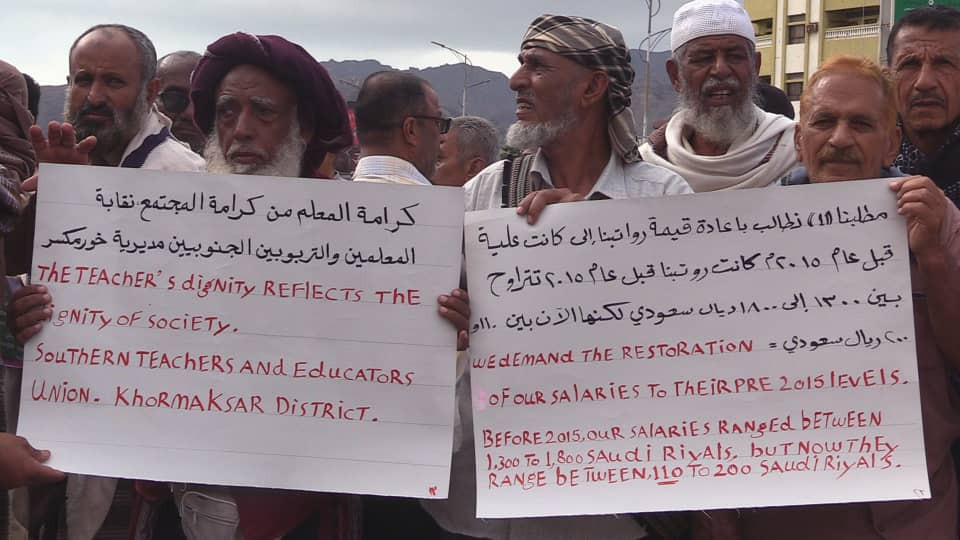 كرامة المعلم من كرامة المجتمع. نقابة
المعلمين والتربويين الجنوبيين مديرية خورمكسر
THE TEACHER'S dIgNITY REFLECTS THE
IgNITY OF SOCIETY.
SOUTHERN TEACHERS ANd EdUCATORS
UNION. KHORMAKSAR DISTRICT.
مطلبنا (1) نطالب باعادة قيمة رواتبنا إلى كانت علية
قبل عام ٢٠١٥م كانت روتبنا قبل عام ٢٠١٥ تتراوح
بين ١٣٠٠ إلى ١٨٠٠ ريال سعودي لكنها الآن بين ١١٠ و
٢٠٠ ريال سعودي =
WE dEMANd THE RESTORATION
OF OUR SALARIES TO THEIR PRE 2015 LEVELS.
BEFORE 2015, OUR SALARIES RANgEd bETWEEN
1,300 TO 1,800 SAUdI RIYALS. bUT NOW THEY
RANGE bETWEEN, 110 TO 200 SAUdI RIYALS.